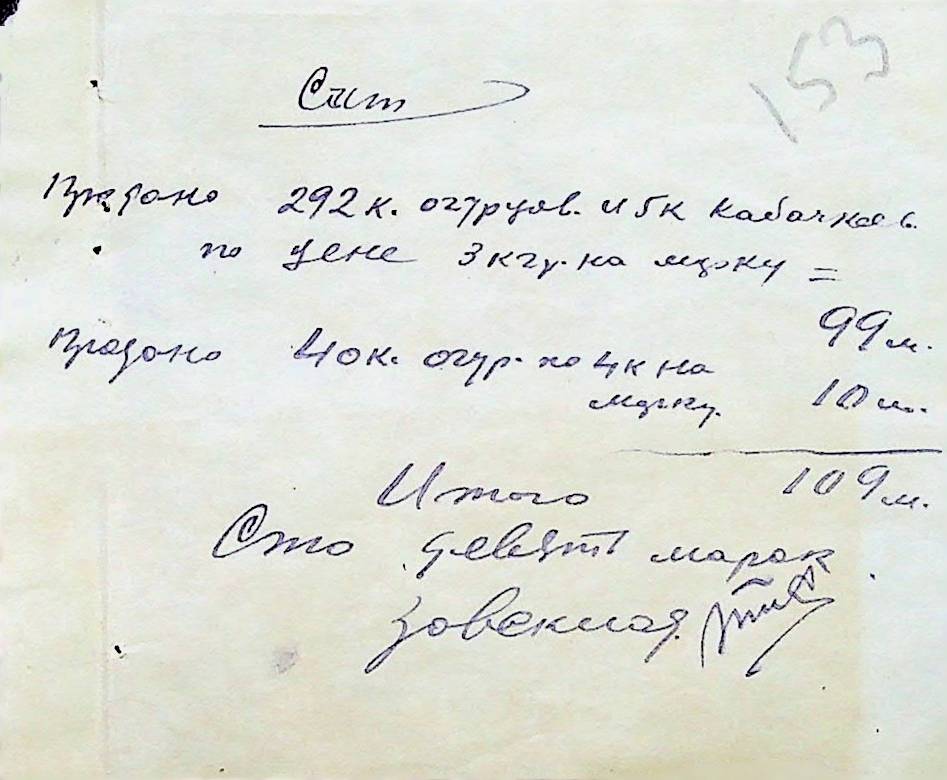 153
Счет
Продано 292 к. огурцов. и 5 к кабачков.
по цене 3 кгр. на марку =
99 м.
Продано 40 к. огур. по 4 к на
марку. 10 м.
Итого 109 м.
Сто девять марок